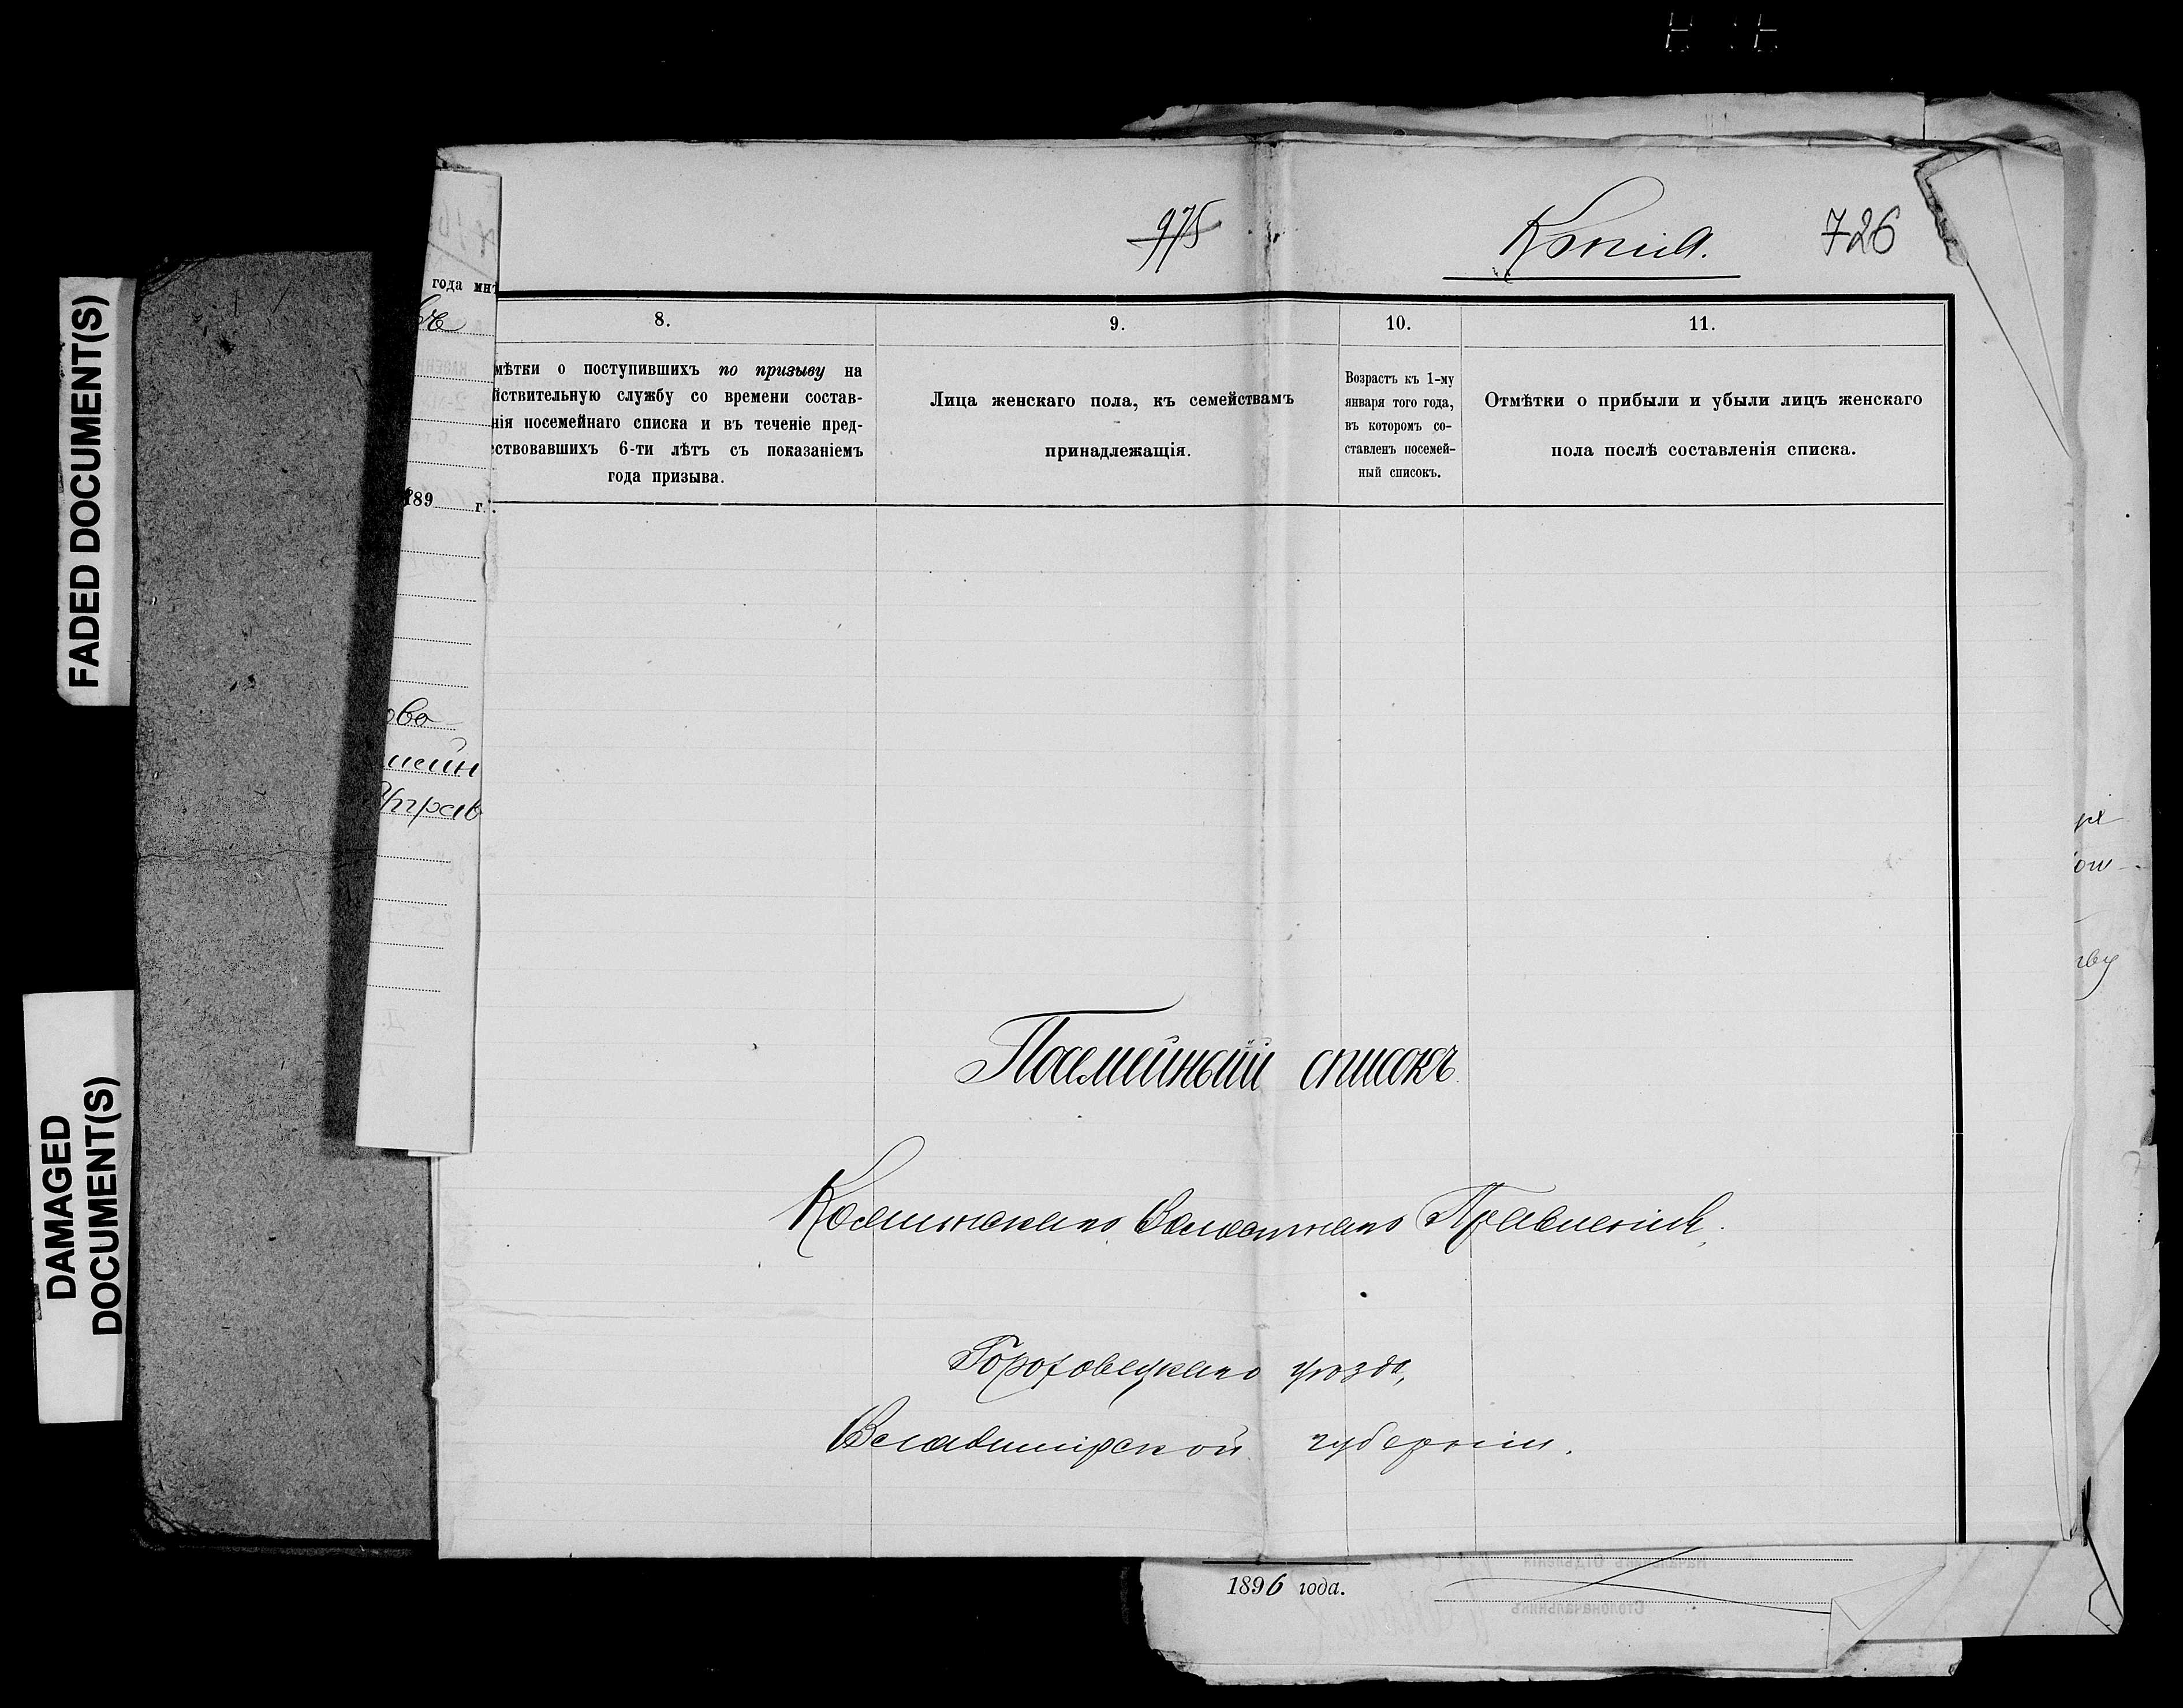 FADED DOCUMENT(S)
DAMAGED
DOCUMENT(S)
975
Копія.
726
года мнѣ
189 г.
8.
мѣтки о поступившихъ по призыву на
йствительную службу со времени состав-
нія посемейнаго списка и въ теченіе пред-
ествовавшихъ 6-ти лѣтъ съ показаніемъ
года призыва.
9.
Лица женскаго пола, къ семействамъ
принадлежащія.
10.
Возрастъ къ 1-му
января того года,
въ которомъ со-
ставленъ посемей-
ный списокъ.
11.
Отмѣтки о прибыли и убыли лицъ женскаго
пола послѣ составленія списка.
ово
Посемейный списокъ
Волостнаго Правленія,
Гороховецкаго уѣзда,
Владимірской губерніи.
1896 года.
Начальникъ Отдѣленія
Столоначальникъ